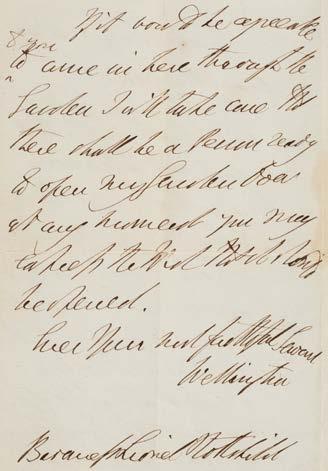 If it would be agreeable
to you
to come in here through the
Garden I will take care that
there shall be a Person ready
to open my Garden Door
at any moment you may
wish that it should
be opened.
Ever Your most faithful Servant
Wellington
Baroness Lionel Rothschild